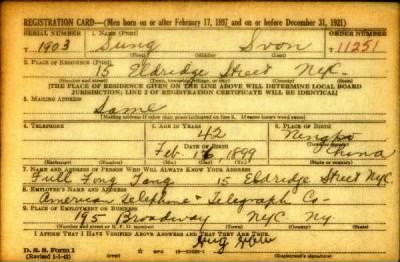 REGISTRATION CARD—(Men born on or after February 17, 1897 and on or before December 31, 1921)
SERIAL NUMBER 1. NAME (Print) ORDER NUMBER
1903 Sung Svon 11251
(First) (Middle) (Last)
2. PLACE OF RESIDENCE (Print)
15 Eldredge Street NYC
(Number and street) (Town, township, village, or city) (County) (State)
[THE PLACE OF RESIDENCE GIVEN ON THE LINE ABOVE WILL DETERMINE LOCAL BOARD
JURISDICTION; LINE 2 OF REGISTRATION CERTIFICATE WILL BE IDENTICAL]
3. MAILING ADDRESS
Same
[Mailing address if other than place indicated on line 2. If same insert word same]
4. TELEPHONE 5. AGE IN YEARS 6. PLACE OF BIRTH
42 Ningpo
DATE OF BIRTH (Town or county)
Feb. 16, 1899 China
(Exchange) (Number) (Mo.) (Day) (Yr.) (State or country)
7. NAME AND ADDRESS OF PERSON WHO WILL ALWAYS KNOW YOUR ADDRESS
Full Fong Tang 15 Eldredge Street NYC.
8. EMPLOYER'S NAME AND ADDRESS
American Telephone & Telegraph Co-
9. PLACE OF EMPLOYMENT OR BUSINESS
195 Broadway NYC Ny.
(Number and street or R. F. D. number) (Town) (County) (State)
I AFFIRM THAT I HAVE VERIFIED ABOVE ANSWERS AND THAT THEY ARE TRUE.
D. S. S. Form 1
(Revised 1-1-42) GPO (Registrant's signature)